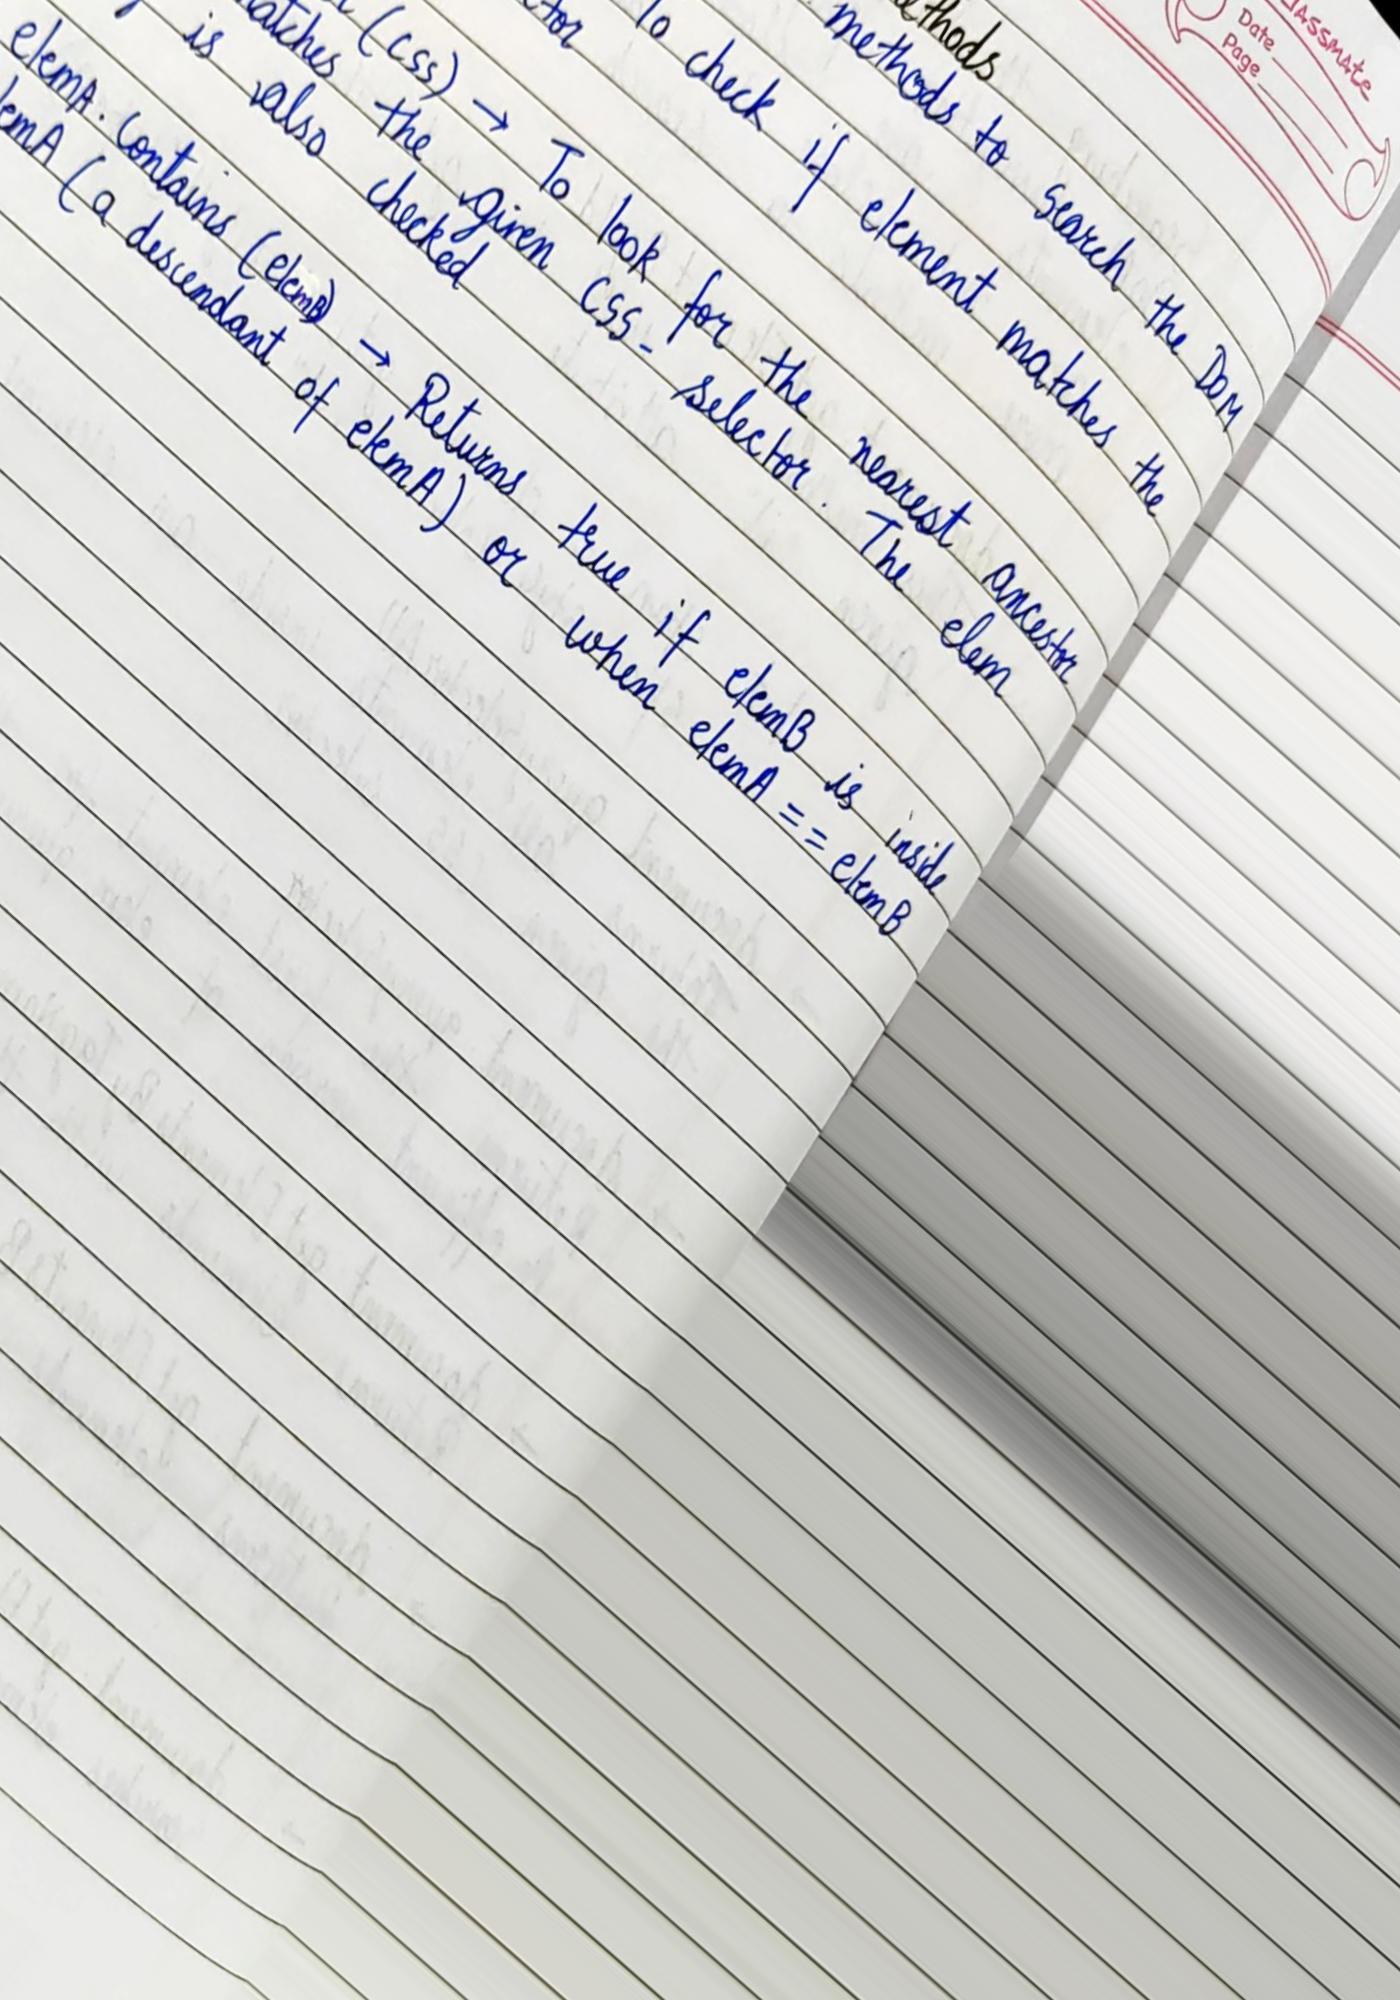 classmate
Date
Page
methods
methods to search the DOM
To check if element matches the
(css) → To look for the nearest ancestor
matches the given CSS - selector. The elem
is also checked
elemA. contains (elemB) → Returns true if elemB is inside
elemA (a descendant of elemA) or when elemA == elemB